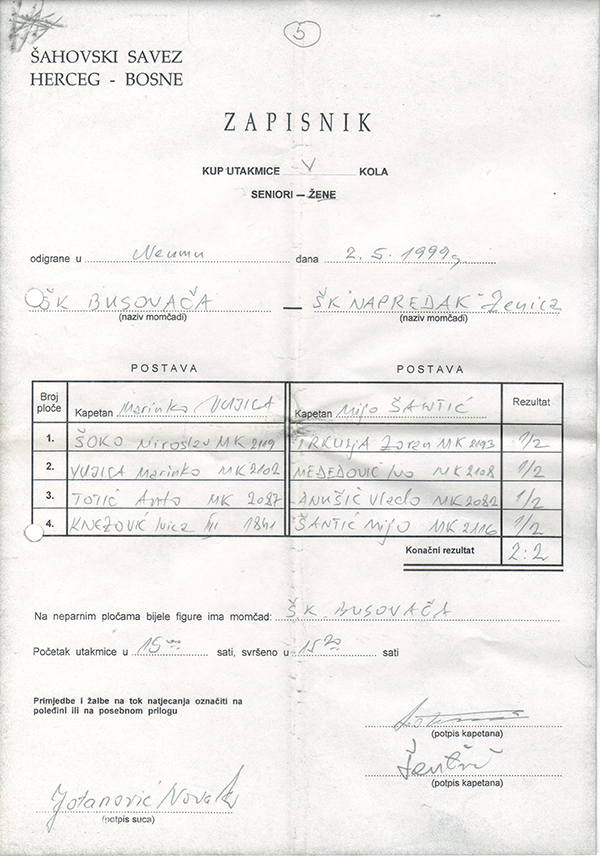 5
ŠAHOVSKI SAVEZ
HERCEG - BOSNE
ZAPISNIK
KUP UTAKMICE V KOLA
SENIORI – ŽENE
odigrane u Neumu dana 2. 5. 1999 g
ŠK BUSOVAČA — ŠK "NAPREDAK" Zenica
(naziv momčadi) (naziv momčadi)
POSTAVA POSTAVA
Broj ploče Kapetan Marinko VUJICA Kapetan Mijo ŠANTIĆ Rezultat
1. ŠOKO Miroslav MK 2119 TRKULJA Zoran MK 2193 1/2
2. VUJICA Marinko MK 2102 MEDEDOVIĆ Ivo MK 2108 1/2
3. TOTIĆ Anto MK 2087 ANUŠIĆ Vlado MK 2082 1/2
4. KNEZOVIĆ Ivica III 1841 ŠANTIĆ Mijo MK 2116 1/2
Konačni rezultat 2:2
Na neparnim pločama bijele figure ima momčad: ŠK BUSOVAČA
Početak utakmice u 15 sati, svršeno u 15 sati
Primjedbe i žalbe na tok natjecanja označiti na
poleđini ili na posebnom prilogu
(potpis kapetana)
(potpis kapetana)
Jotanović Novak
(potpis suca)